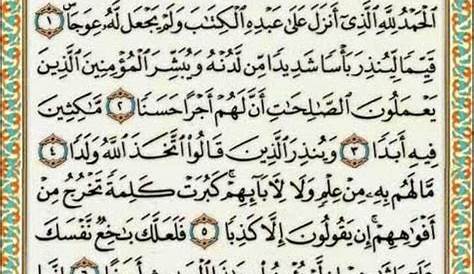 ٱلْحَمْدُ لِلَّهِ ٱلَّذِىٓ أَنزَلَ عَلَىٰ عَبْدِهِ ٱلْكِتَٰبَ وَلَمْ يَجْعَل لَّهُۥ عِوَجَاۜ ١
قَيِّمًا لِّيُنذِرَ بَأْسًا شَدِيدًا مِّن لَّدُنْهُ وَيُبَشِّرَ ٱلْمُؤْمِنِينَ ٱلَّذِينَ
يَعْمَلُونَ ٱلصَّٰلِحَٰتِ أَنَّ لَهُمْ أَجْرًا حَسَنًا ٢ مَّٰكِثِينَ
فِيهِ أَبَدًا ٣ وَيُنذِرَ ٱلَّذِينَ قَالُوا۟ ٱتَّخَذَ ٱللَّهُ وَلَدًا ٤
مَّا لَهُم بِهِۦ مِنْ عِلْمٍ وَلَا لِـَٔابَآئِهِمْ ۚ كَبُرَتْ كَلِمَةً تَخْرُجُ مِنْ
أَفْوَٰهِهِمْ ۚ إِن يَقُولُونَ إِلَّا كَذِبًا ٥ فَلَعَلَّكَ بَٰخِعٌ نَّفْسَكَ